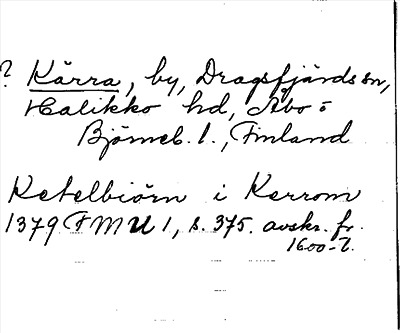 ? Kärra, by, Dragsfjärds sn,
Halikko hd, Åbo o
Björneb. l., Finland
Ketelbiörn i Kerrom
1379 FMU 1, s. 375. avskr. fr.
1600-t.